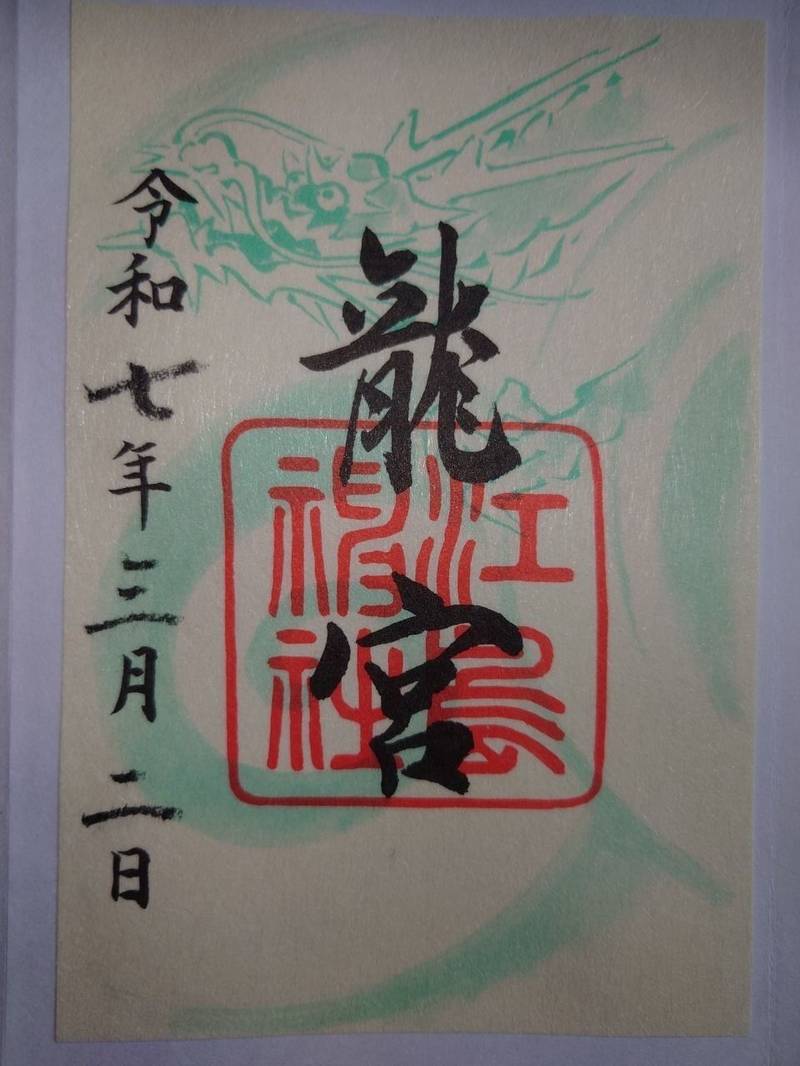 龍宮
江島神社
令和七年三月二日